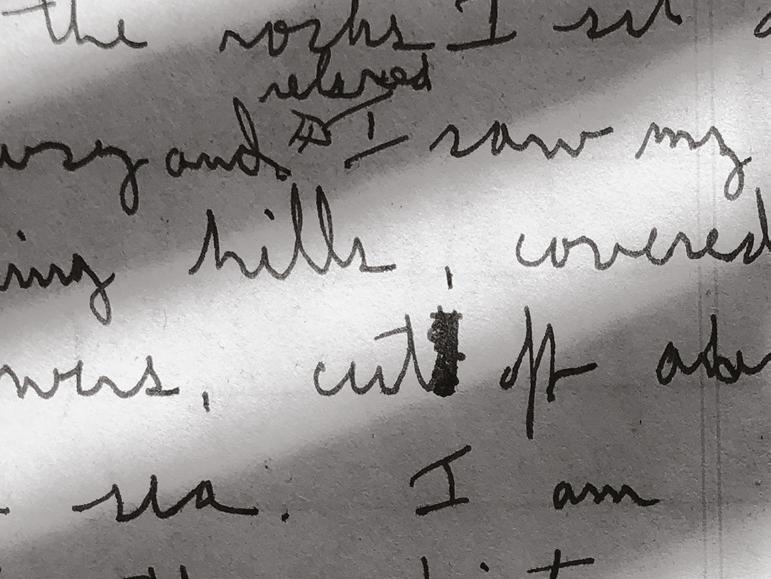 the rocks I sit
relaxed
and I saw my
ing hills, covered
wers, cut off
sea. I am